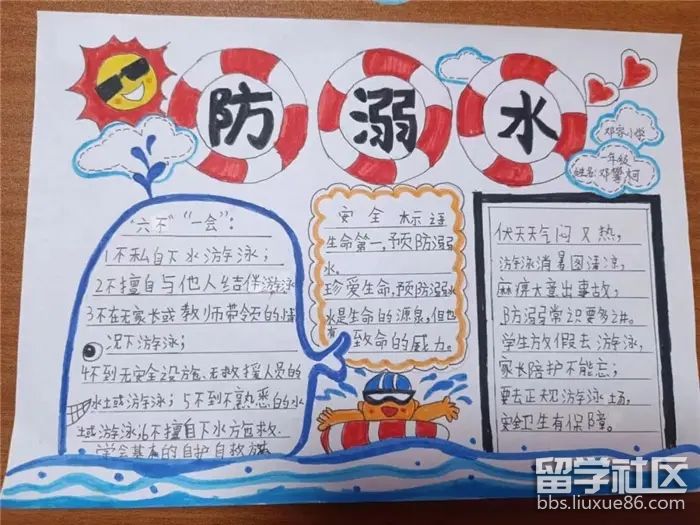 防溺水
邓家小学
一年级
姓名:邓馨柯
"六不""一会":
1不私自下水游泳;
2不擅自与他人结伴游泳
3不在无家长或教师带领的情
况下游泳;
4不到无安全设施、无救援人员的
水域游泳;5不到不熟悉的水
域游泳;6不擅自下水施救.
学会基本的自护自救方法
安全标语
生命第一,预防溺
水.
珍爱生命,预防溺水
水是生命的源泉,但也
有致命的威力.
伏天天气闷又热,
游泳消暑图清凉,
麻痹大意出事故,
防溺常识要多讲。
学生放假去游泳,
家长陪护不能忘;
要去正规游泳场,
安全卫生有保障。
留学社区
bbs.liuxue86.com